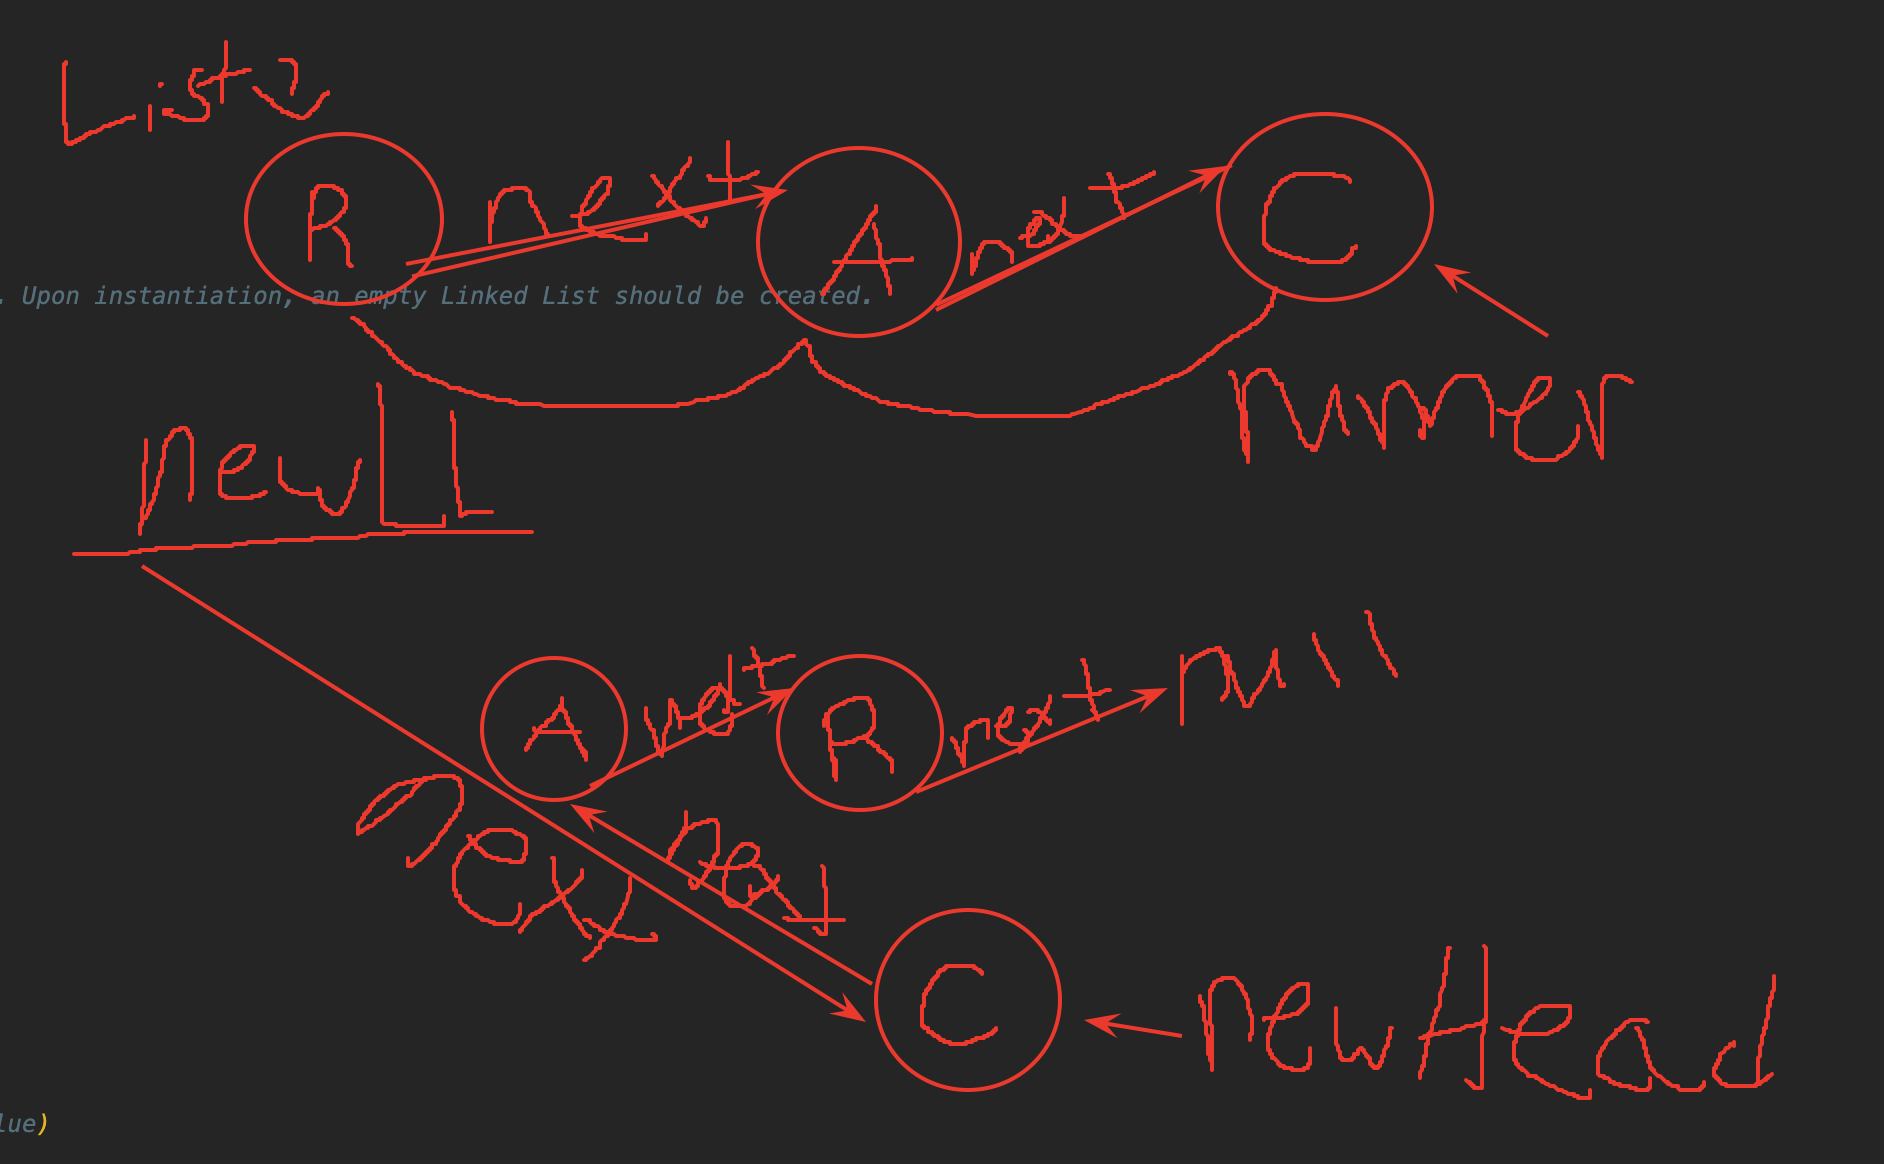 List 2
R next A next C
. Upon instantiation, an empty Linked List should be created.
runner
new LL
A next R next null
next next
C newHead
lue)